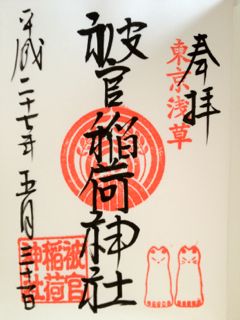 奉拝
東京浅草
被官稲荷神社
被官
稲荷
神社
平成二十七年五月三十一日